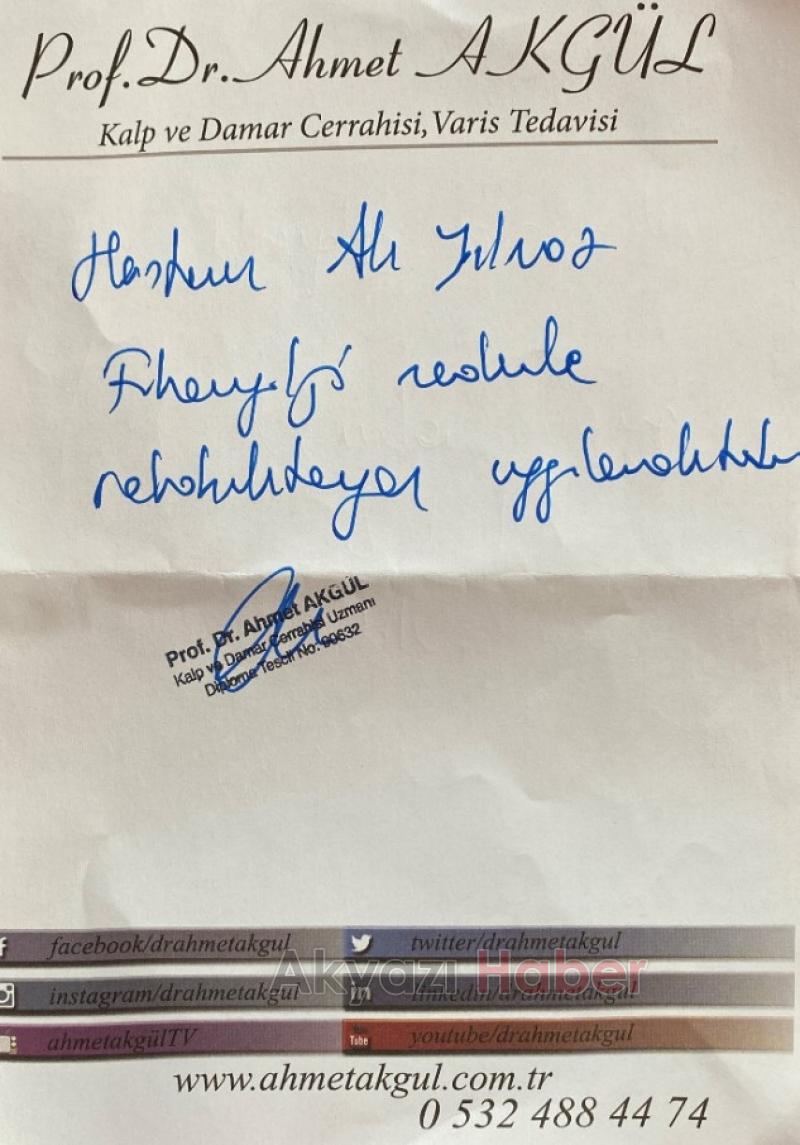 Prof. Dr. Ahmet AKGÜL
Kalp ve Damar Cerrahisi, Varis Tedavisi
Hastam Ali Yılmaz
rehabilitasyon uygulanmaktadır
Prof. Dr. Ahmet AKGÜL
Kalp ve Damar Cerrahisi Uzmanı
Diploma Tescil No: 90632
facebook/drahmetakgul
twitter/drahmetakgul
Akyazı Haber
instagram/drahmetakgul
linkedin/drahmetakgul
ahmetakgülTV
You Tube
youtube/drahmetakgul
www.ahmetakgul.com.tr
0 532 488 44 74